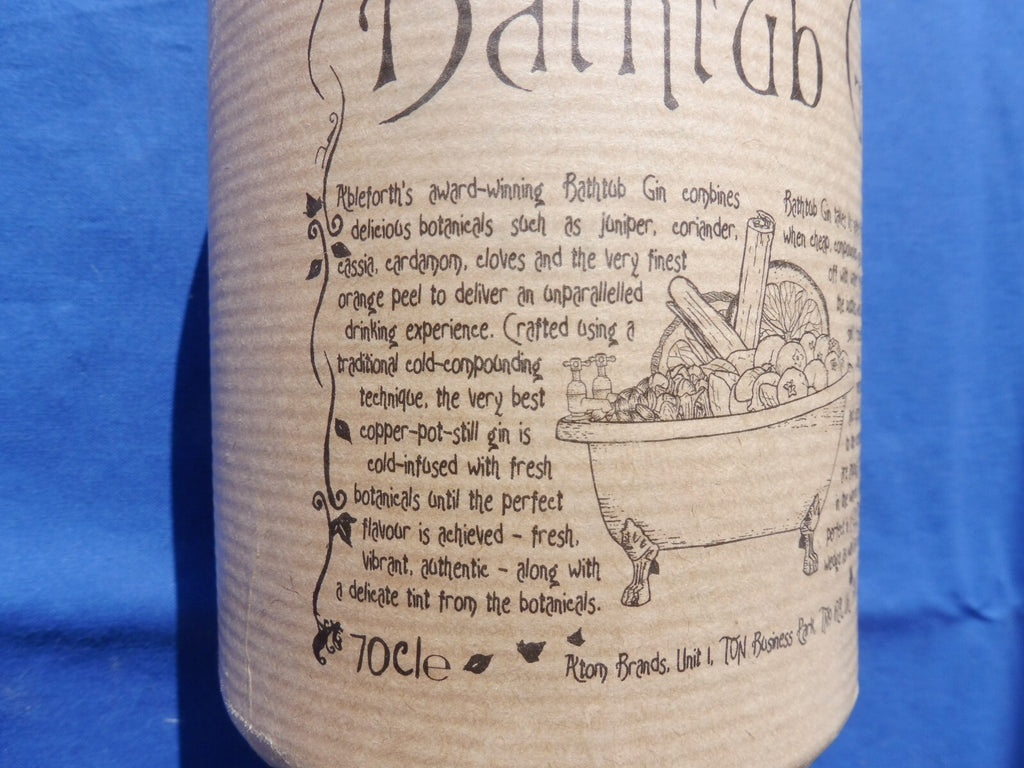 Bathtub
Ableforth's award-winning Bathtub Gin combines
delicious botanicals such as juniper, coriander,
cassia, cardamom, cloves and the very finest
orange peel to deliver an unparallelled
drinking experience. Crafted using a
traditional cold-compounding
technique, the very best
copper-pot-still gin is
cold-infused with fresh
botanicals until the perfect
flavour is achieved - fresh,
vibrant, authentic - along with
a delicate tint from the botanicals.
Bathtub Gin takes
when cheap,
off with
perfect
70cl e
Atom Brands, Unit 1, TON Business Park,